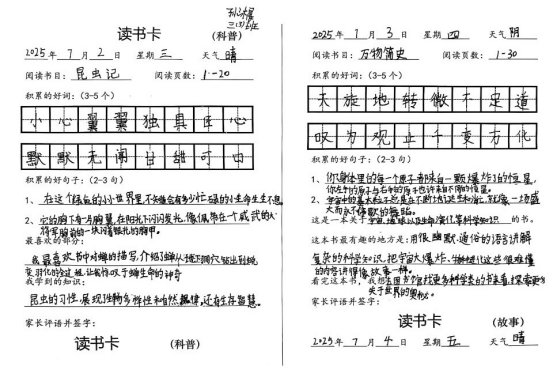 读书卡
（科普）
2025年 7 月 2 日 星期 三 天气 晴
阅读书目：昆虫记 阅读页数：1-20
积累的好词：（3-5个）
小心翼翼独具匠心
默默无闻甘甜可口
积累的好句子：（2-3句）
1、在这个绿色的小世界里,不知隐藏有多少忙碌的小生命生生不息
2、它的胸令方胸翼,在阳光下闪闪发光,像佩带在个威武的人
将军胸前的一块闪着银光的胸甲。
最喜欢的部分：
我最喜欢书中对蝉的描写,介绍了蝉从地下洞穴
变羽化的过程,让我惊叹于蝉生命的神奇
我学到的知识：
昆虫的习性,展现生物多样性和自然规律,还有生存智慧。
家长评语并签字：
读书卡
（科普）
2025年 7 月 3 日 星期 四 天气 阴
阅读书目：万物简史 阅读页数：1-30
积累的好词：（3-5个）
天旋地转微不足道
叹为观止千变万化
积累的好句子：（2-3句）
1、你身体里的每一个原子都来自一颗爆炸了的恒星,
你左手的原子与右手的原子也许来自不同的恒星。
2、宇宙中的基本粒子总是在不断地诞生和消亡,就像一场盛
大而永恒的舞蹈
这是一本关于宇宙、地球以及生命演化等科学知识的书。
这本书最有趣的地方是：用很幽默通俗的语言讲解
复杂的科学知识,把宇宙大爆炸、生命进化这些很难懂
的内容讲得像故事一样。
看完这本书，我想去图书馆找更多科学类的书籍看,探索更多
关于世界的奥秘。
家长评语并签字：
读书卡
（故事）
2025年 7 月 4 日 星期 五 天气 晴